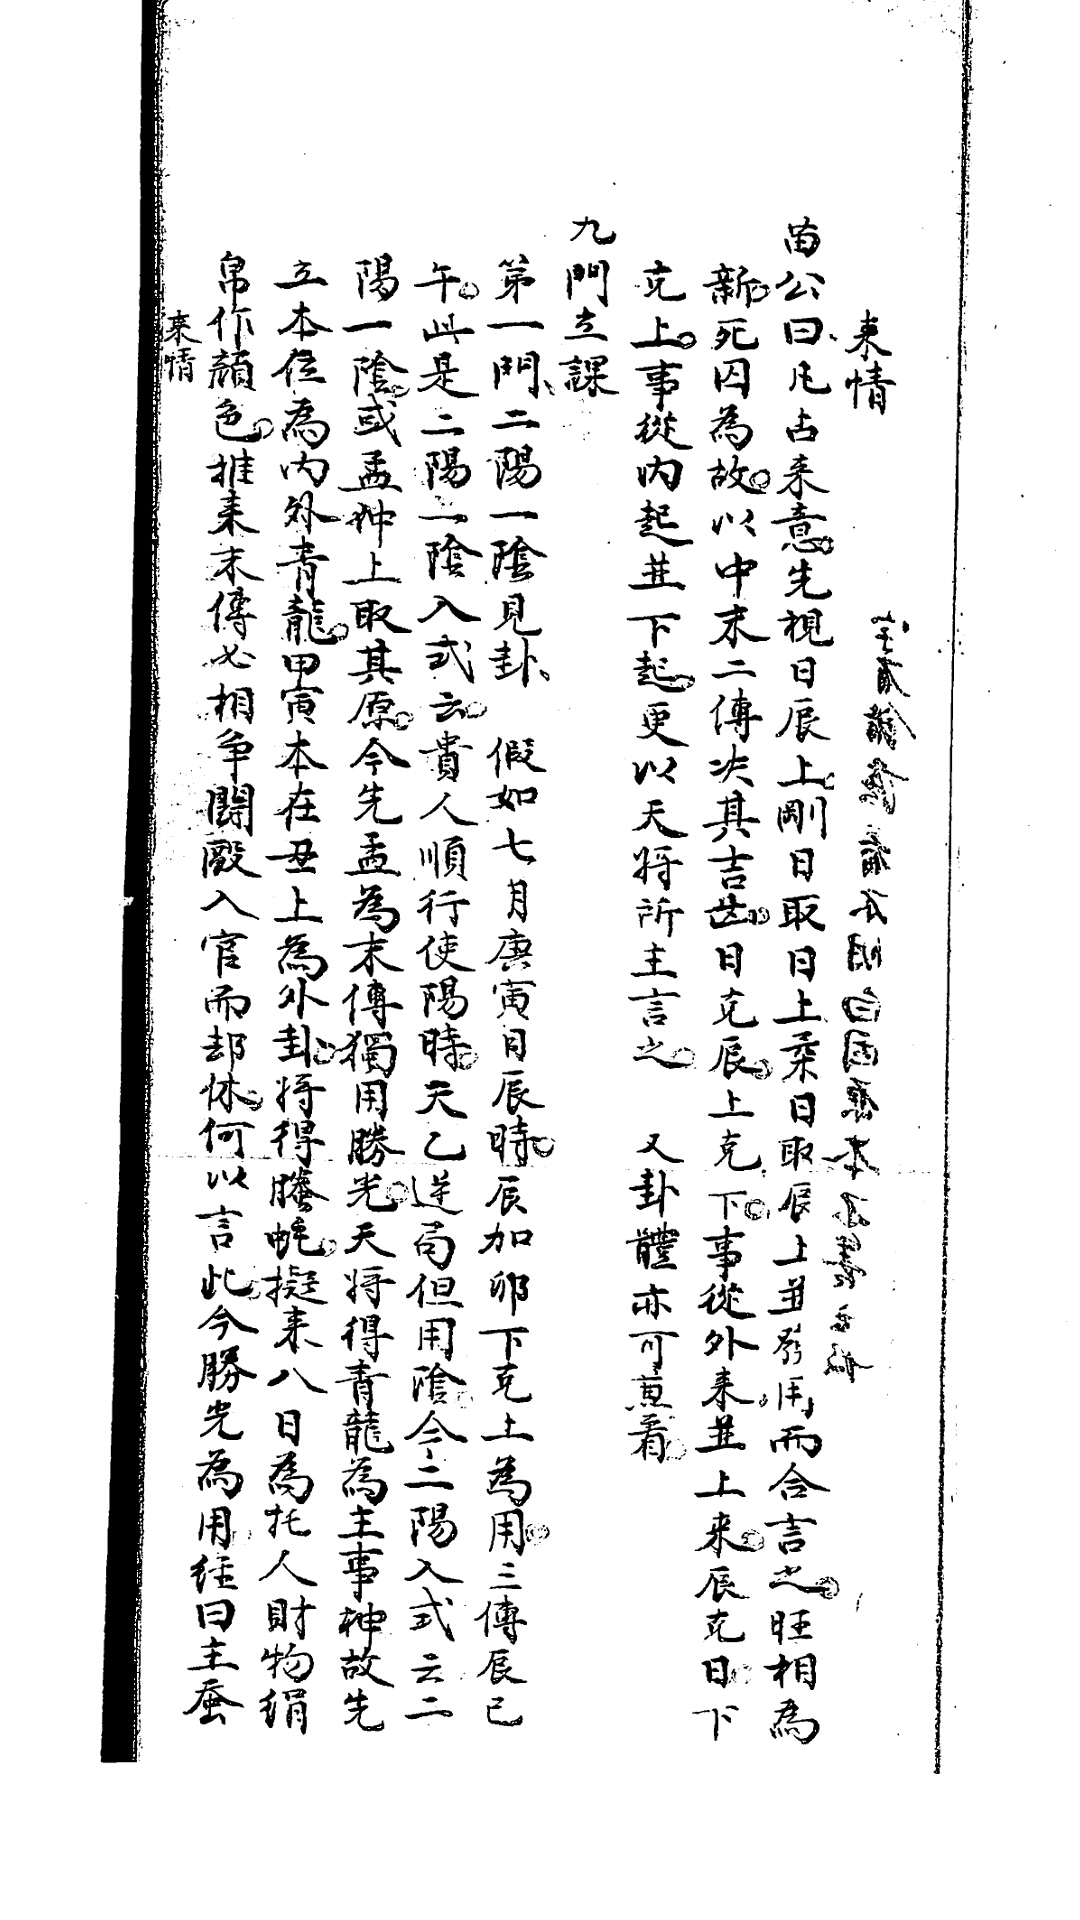 来情
苗公曰凡占来意先視日辰上剛日取日上柔日取辰上并發用而合言之旺相為
新死囚為故以中末二傳决其吉凶日克辰上克下事從外来並上来辰克日下
克上事從内起並下起更以天將所主言之 又卦體亦可兼看
九門立課
第一門二陽一陰見卦 假如七月庚寅日辰時辰加卯下克上為用三傳辰巳
午此是二陽一陰入式云貴人順行使陽時天乙逆局但用陰今二陽入式云二
陽一陰或孟仲上取其原今先孟為末傳獨用勝光天將得青龍為主事神故先
立本位為内外青龍甲寅本在丑上為外卦將得騰蛇擬来八日為托人財物絹
帛作顔色推来末傳必相争鬪毆入官而却休何以言此今勝光為用經曰主蚕
来情